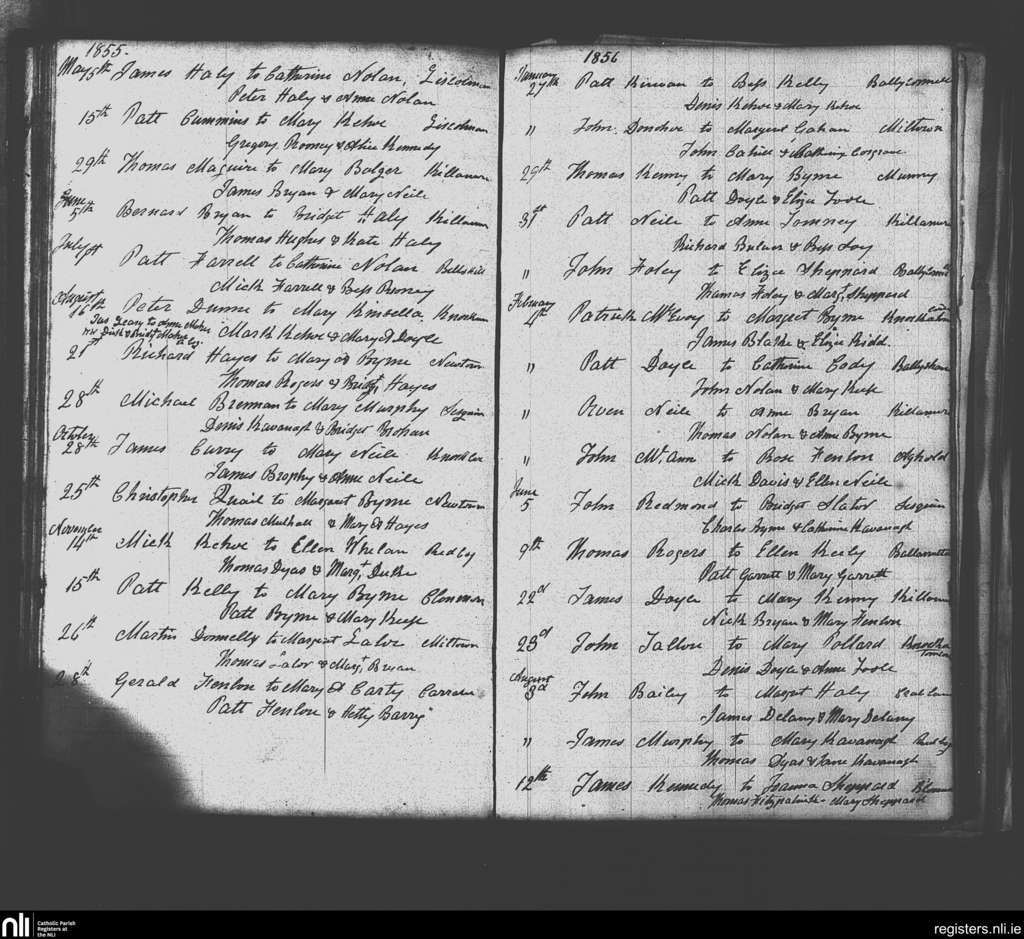 1855.
May 15th James Haly to Catherine Nolan, Liscolman
Peter Haly & Anne Nolan
15th Patt Cummins to Mary Kehoe Liscolman
Gregory Rooney & Alice Kennedy
29th Thomas Maguire to Mary Bolger Killamore
James Bryan & Mary Neile
June 5th Bernard Bryan to Bridget Haly Killamore
Thomas Hughes & Kate Haly
July Patt Farrell to Catherine Nolan
Mick Farrell & Bess
August 16th Peter Dunne to Mary Kinsella
Jas Leary to Anne
Mark Kehoe & Mary A Doyle
21st Richard Hayes to Mary A Byrne Newtown
Thomas Rogers & Bridgt. Hayes
28th Michael Brennan to Mary Murphy
Denis Kavanagh & Bridget
October 28th James Curry to Mary Neile
James Brophy & Anne Neile
25th Christopher Quail to Margaret Byrne Newtown
Thomas & Mary A Hayes
November 14th Mick Kehoe to Ellen Whelan
Thomas Dyas & Margt.
15th Patt Kelly to Mary Byrne Clonmore
Patt Byrne & Mary
26th Martin Donnelly to Margaret Lalor Mittown
Thomas Lalor & Margt.
28th Gerald Fenlon to Mary A Carty
Patt Fenlon & Hetty Barry
1856
January 27th Patt Kirwan to Bess Kelly Ballyconnell
Denis Kehoe & Mary Kehoe
" John Donohoe to Margaret Gahan Mittown
John Cahill & Cosgrave
29th Thomas Kenny to Mary Byrne Munny
Patt Doyle & Eliza Toole
31st Patt Neile to Anne Killamore
Richard & Bess
" John Foley to Eliza Sheppard
Thomas Foley & Margt. Sheppard
February 4th Patrick McEvoy to Margaret Byrne
James Blake & Eliza Kidd
" Patt Doyle to Catherine Cody
John Nolan & Mary
" Owen Neile to Anne Bryan Killamore
Thomas Nolan & Anne Byrne
" John McCann to Rose Fenlon Aghold
Mick Davis & Ellen Neile
June 5 John Redmond to Bridget Slator
Charles Byrne & Catherine Kavanagh
9th Thomas Rogers to Ellen Keely
Patt Garrett & Mary Garrett
22d James Doyle to Mary Kenny
Nick Bryan & Mary Fenlon
23d John Tallon to Mary Pollard
Denis Doyle & Anne Toole
August 3d John Bailey to Margaret Haly
James Delany & Mary Delany
" James Murphy to Mary Kavanagh
Thomas Dyas & Jane Kavanagh
12th James Kennedy to Joanna Sheppard
Thomas Fitzpatrick Mary Sheppard
nli
Catholic Parish
Registers at
the NLI
registers.nli.ie